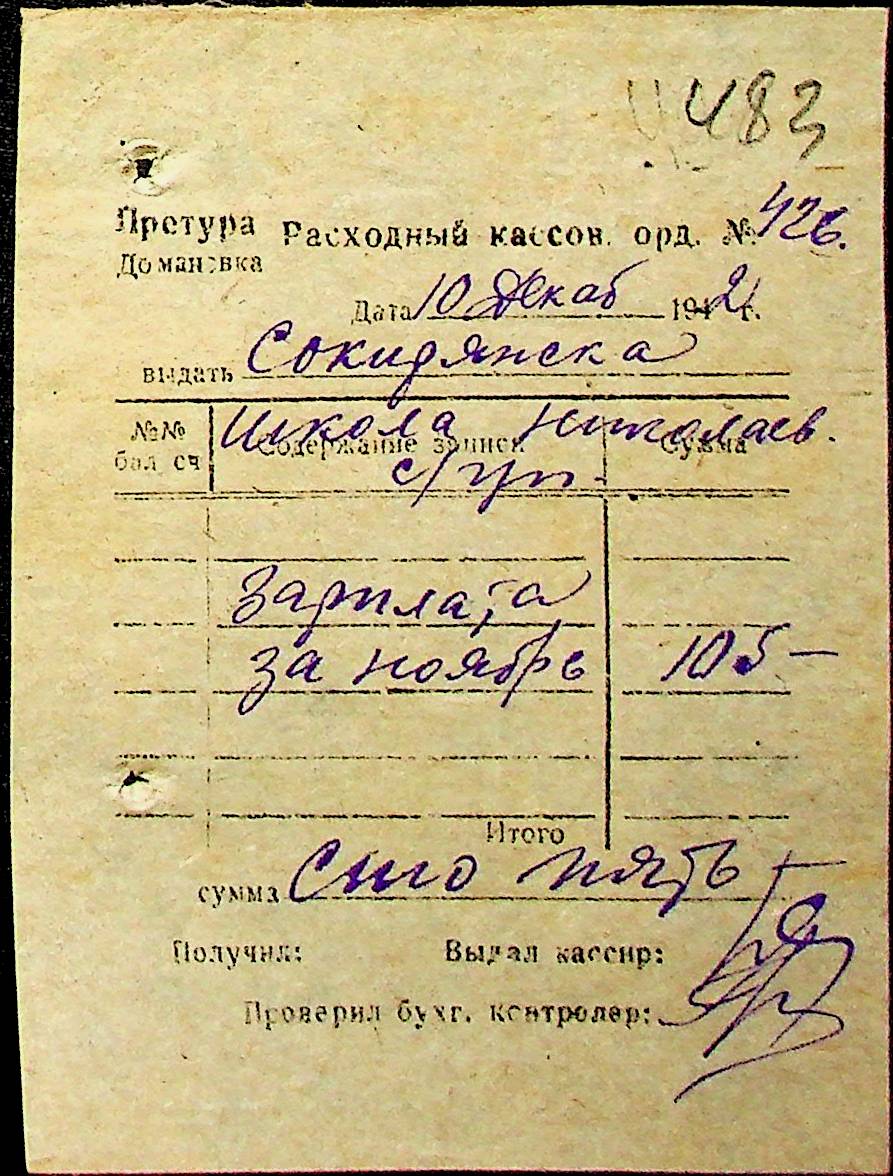 483
Претура Расходный кассов. орд. № 426.
Домановка
Дата 10 Декаб 1942 г.
выдать Сокирянска
Школа Николаев.
№№ бал сч Содержание записи Сумма
с/уп.
Зарплата
за ноябрь 105 —
Итого
сумма Сто пять —
Получил: Выдал кассир:
Проверил бухг. контролер: